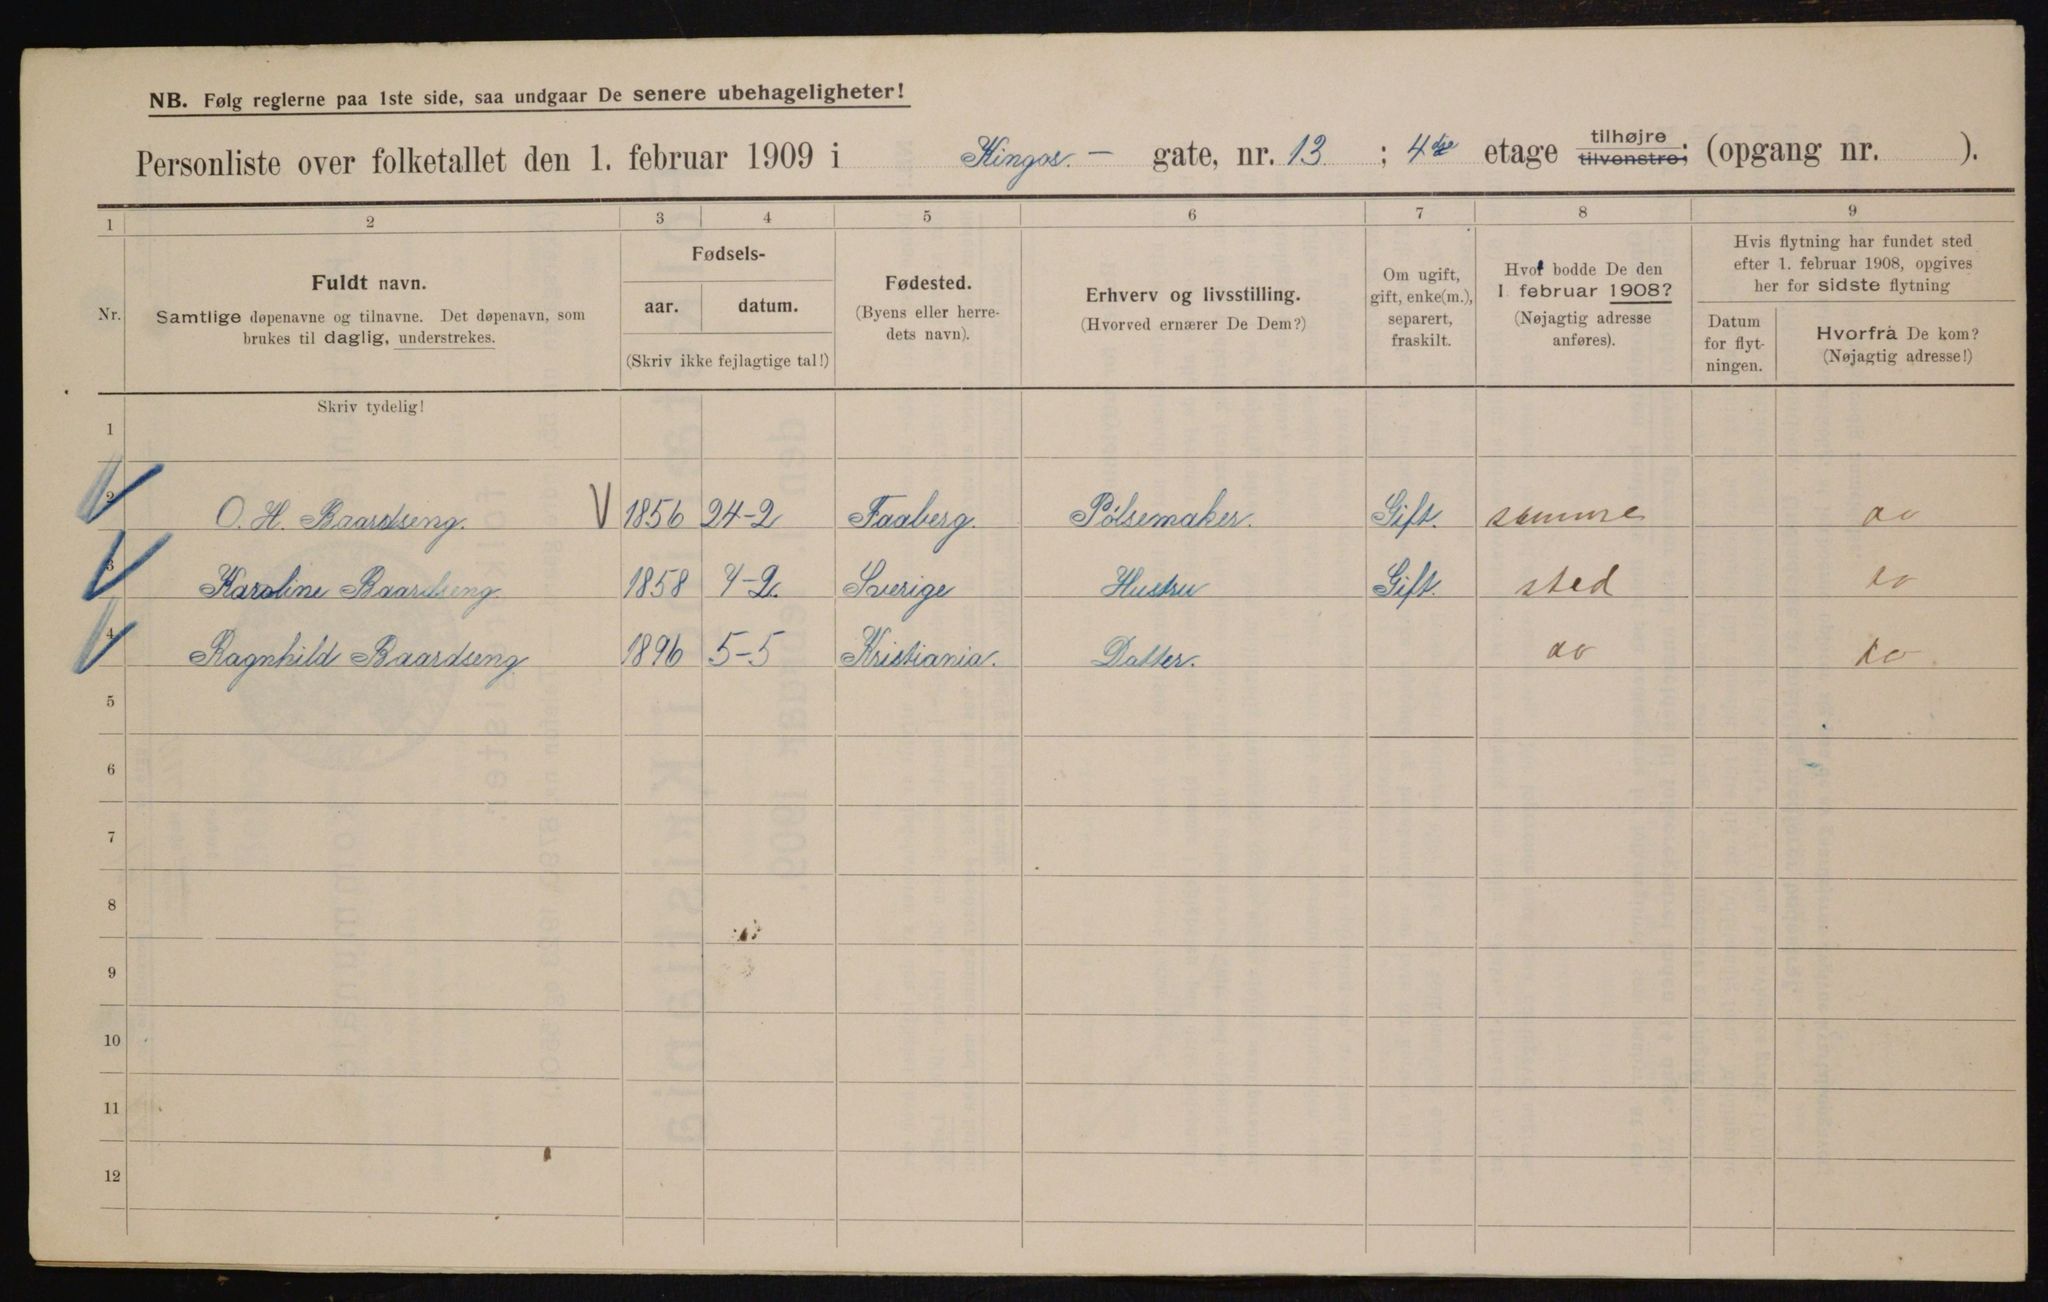 NB. Følg reglerne paa 1ste side, saa undgaar De senere ubehageligheter!
Personliste over folketallet den 1. februar 1909 i Kingos. – gate, nr. 13 ; 4de etage tilhøjre tilvenstre; (opgang nr. ).
1 2 3 4 5 6 7 8 9
Nr.
Fuldt navn.
Samtlige døpenavne og tilnavne. Det døpenavn, som
brukes til daglig, understrekes.
Fødsels-
aar. datum.
(Skriv ikke fejlagtige tal!)
Fødested.
(Byens eller herre-
dets navn).
Erhverv og livsstilling.
(Hvorved ernærer De Dem?)
Om ugift,
gift, enke(m.),
separert,
fraskilt.
Hvor bodde De den
1. februar 1908?
(Nøjagtig adresse
anføres).
Hvis flytning har fundet sted
efter 1. februar 1908, opgives
her for sidste flytning
Datum
for flyt-
ningen.
Hvorfra De kom?
(Nøjagtig adresse!)
Skriv tydelig!
1
2 O. H. Baardseng. V 1856 24-2 Faaberg. Pölsemaker. Gift. samme do
3 Karoline Baardseng 1858 4-2. Sverige Hustru Gift. sted do
4 Ragnhild Baardseng 1896 5-5 Kristiania. Datter. do do
5
6
7
8
9
10
11
12